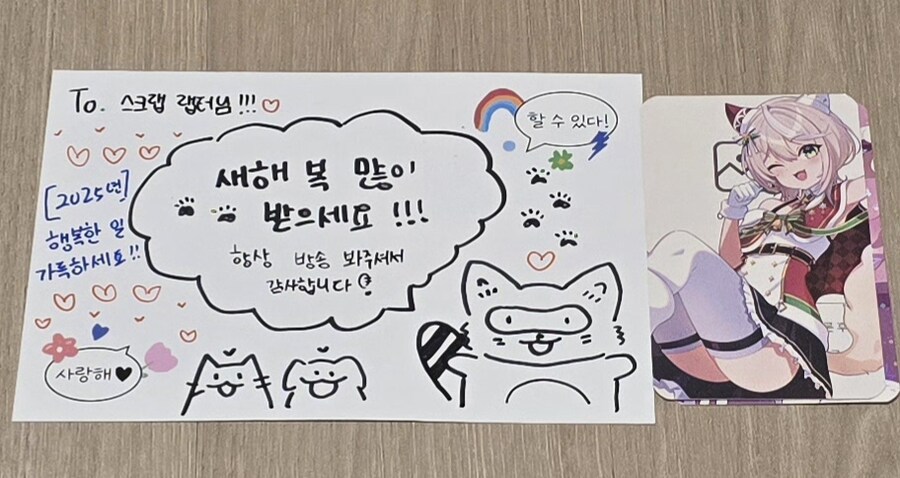 To. 스크랩 랩터님!!!
할 수 있다!
새해 복 많이
받으세요 !!!
항상 방송 봐주셔서
감사합니다
[2025년]
행복한 일
가득하세요!!
사랑해